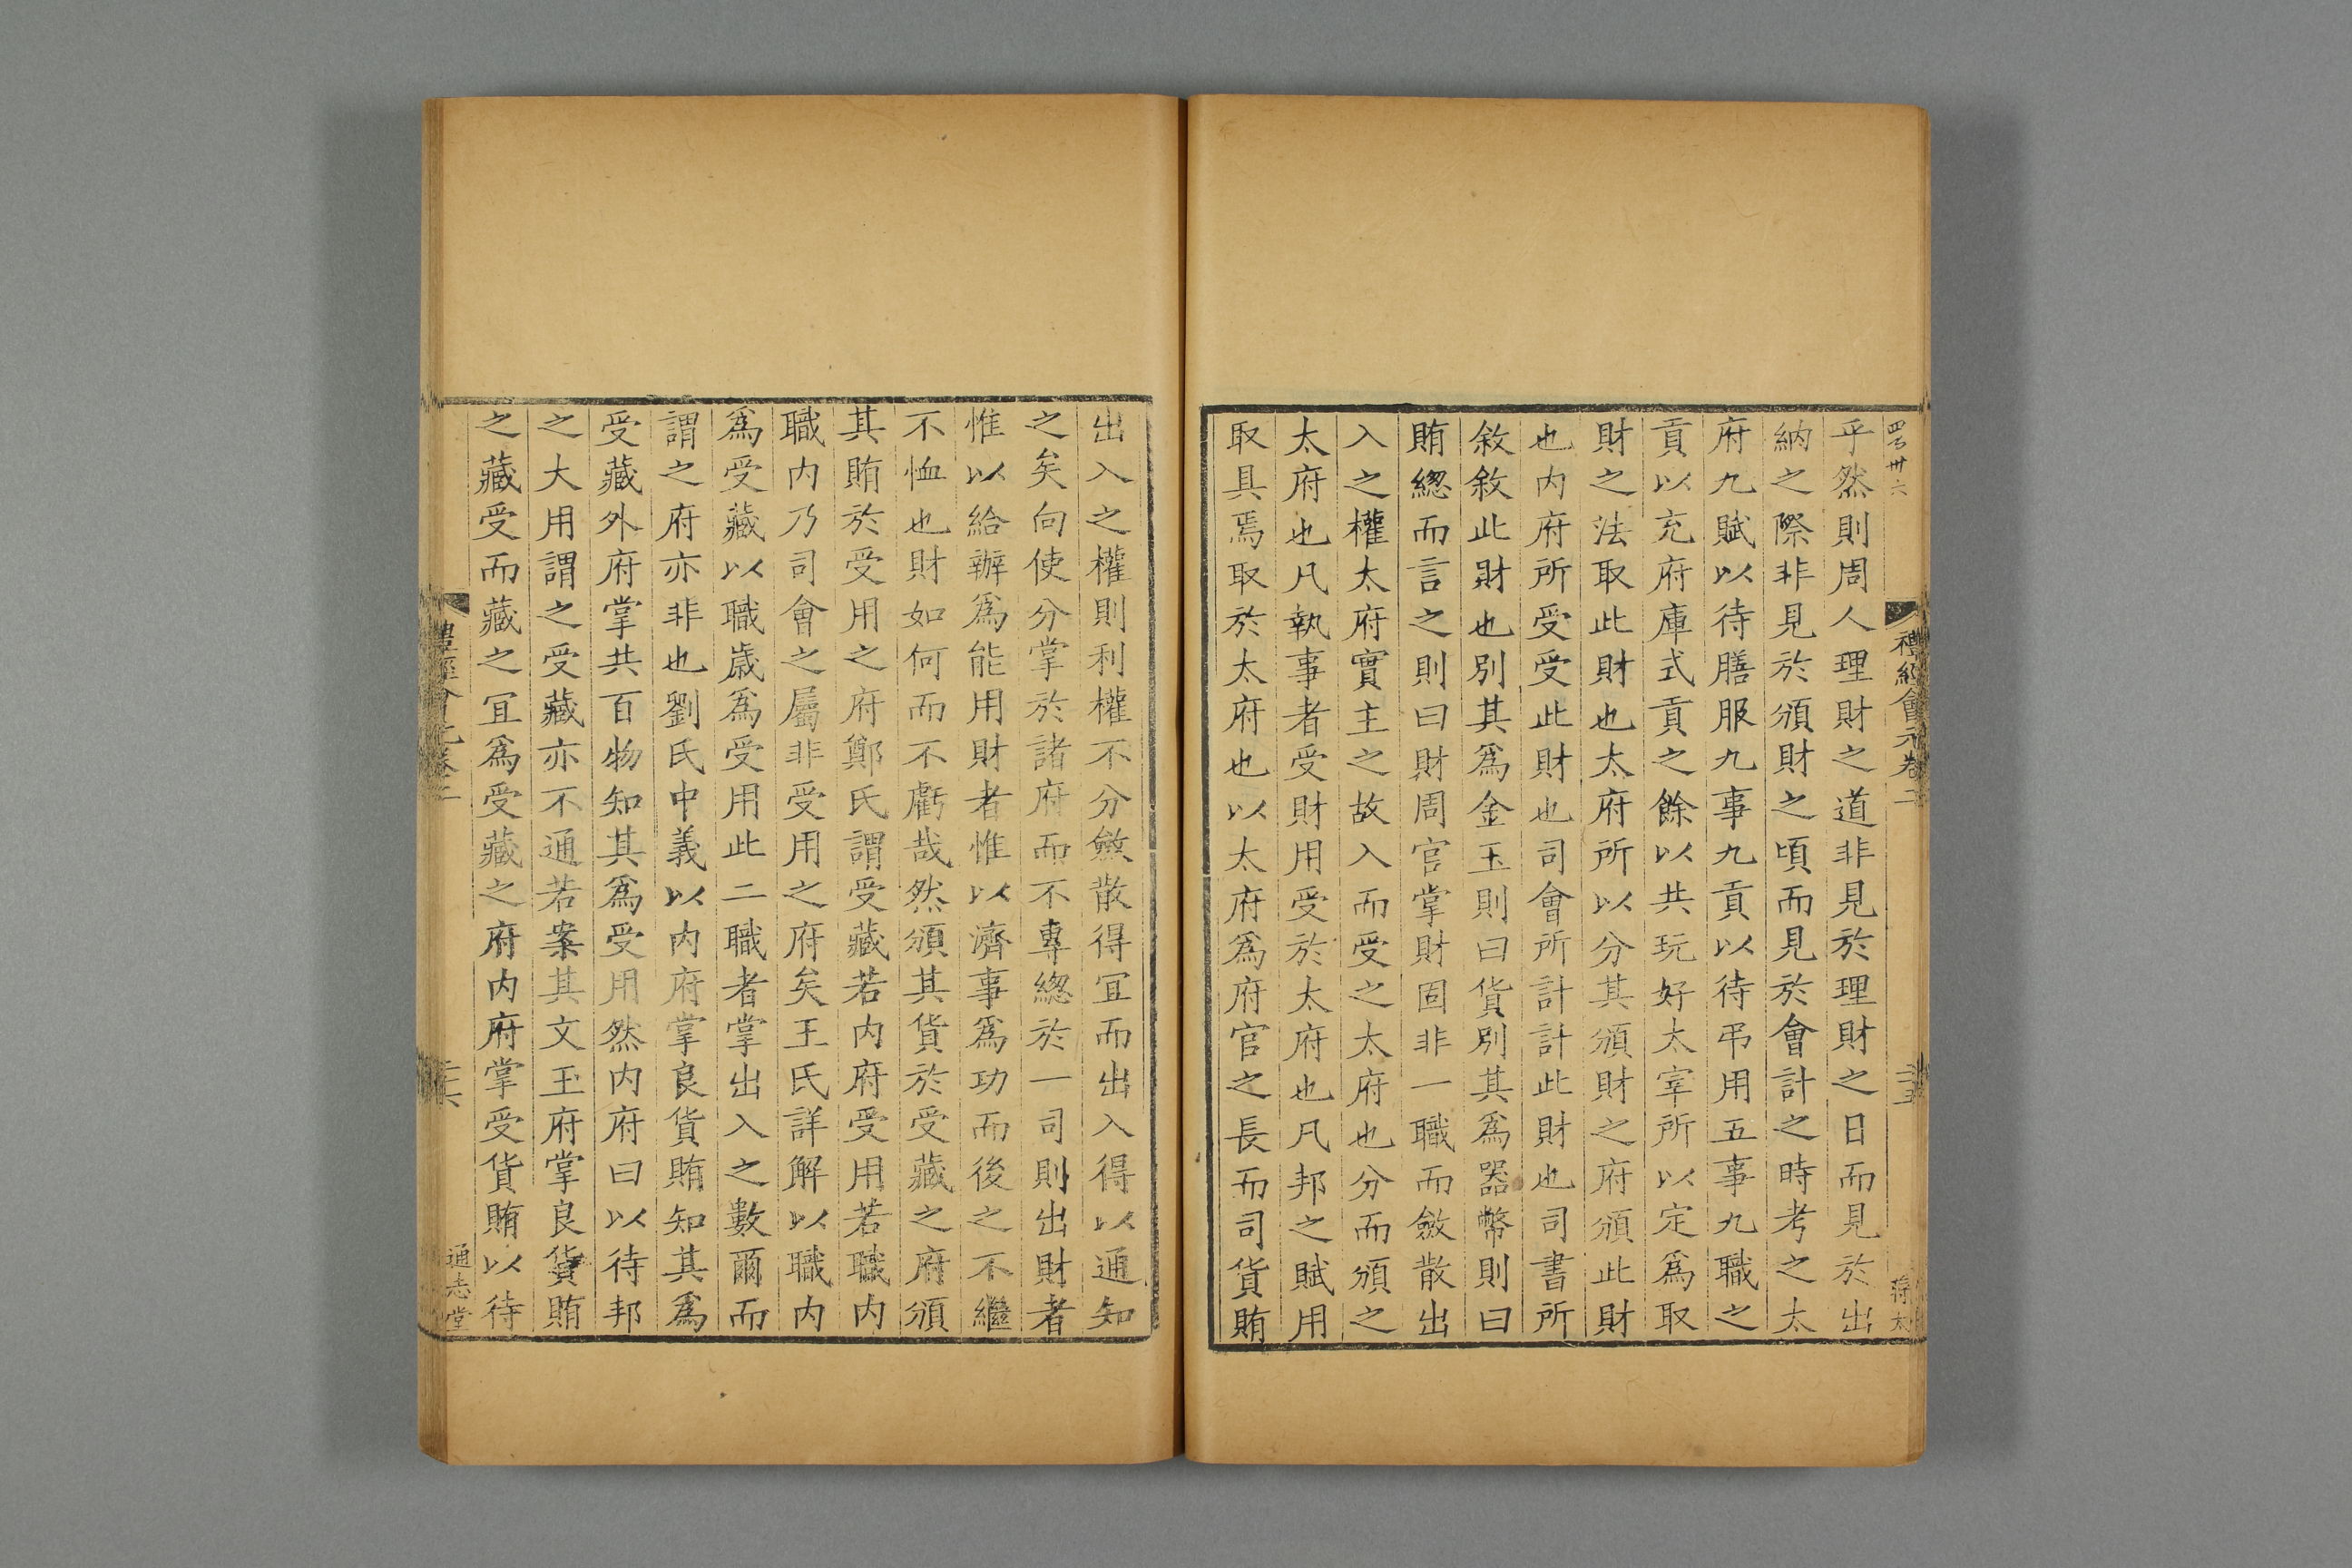 四百卅六
禮經會元卷二
二五
蔣太
乎然則周人理財之道非見於理財之日而見於出
納之際非見於頒財之頃而見於會計之時考之太
府九賦以待膳服九事九貢以待弔用五事九職之
貢以充府庫式貢之餘以共玩好太宰所以定為取
財之法取此財也太府所以分其頒財之府頒此財
也内府所受受此財也司會所計計此財也司書所
敘敘此財也別其為金玉則曰貨別其為器幣則曰
賄總而言之則曰財周官掌財固非一職而斂散出
入之權太府實主之故入而受之太府也分而頒之
太府也凡執事者受財用受於太府也凡邦之賦用
取具焉取於太府也以太府為府官之長而司貨賄
出入之權則利權不分斂散得宜而出入得以通知
之矣向使分掌於諸府而不專總於一司則出財者
惟以給辦為能用財者惟以濟事為功而後之不繼
不恤也財如何而不虧哉然頒其貨於受藏之府頒
其賄於受用之府鄭氏謂受藏若内府受用若職内
職内乃司會之屬非受用之府矣王氏詳解以職内
為受藏以職歲為受用此二職者掌出入之數爾而
謂之府亦非也劉氏中義以内府掌良貨賄知其為
受藏外府掌共百物知其為受用然内府曰以待邦
之大用謂之受藏亦不通若案其文玉府掌良貨賄
之藏受而藏之宜為受藏之府内府掌受貨賄以待
禮經會元卷二
二六
通志堂